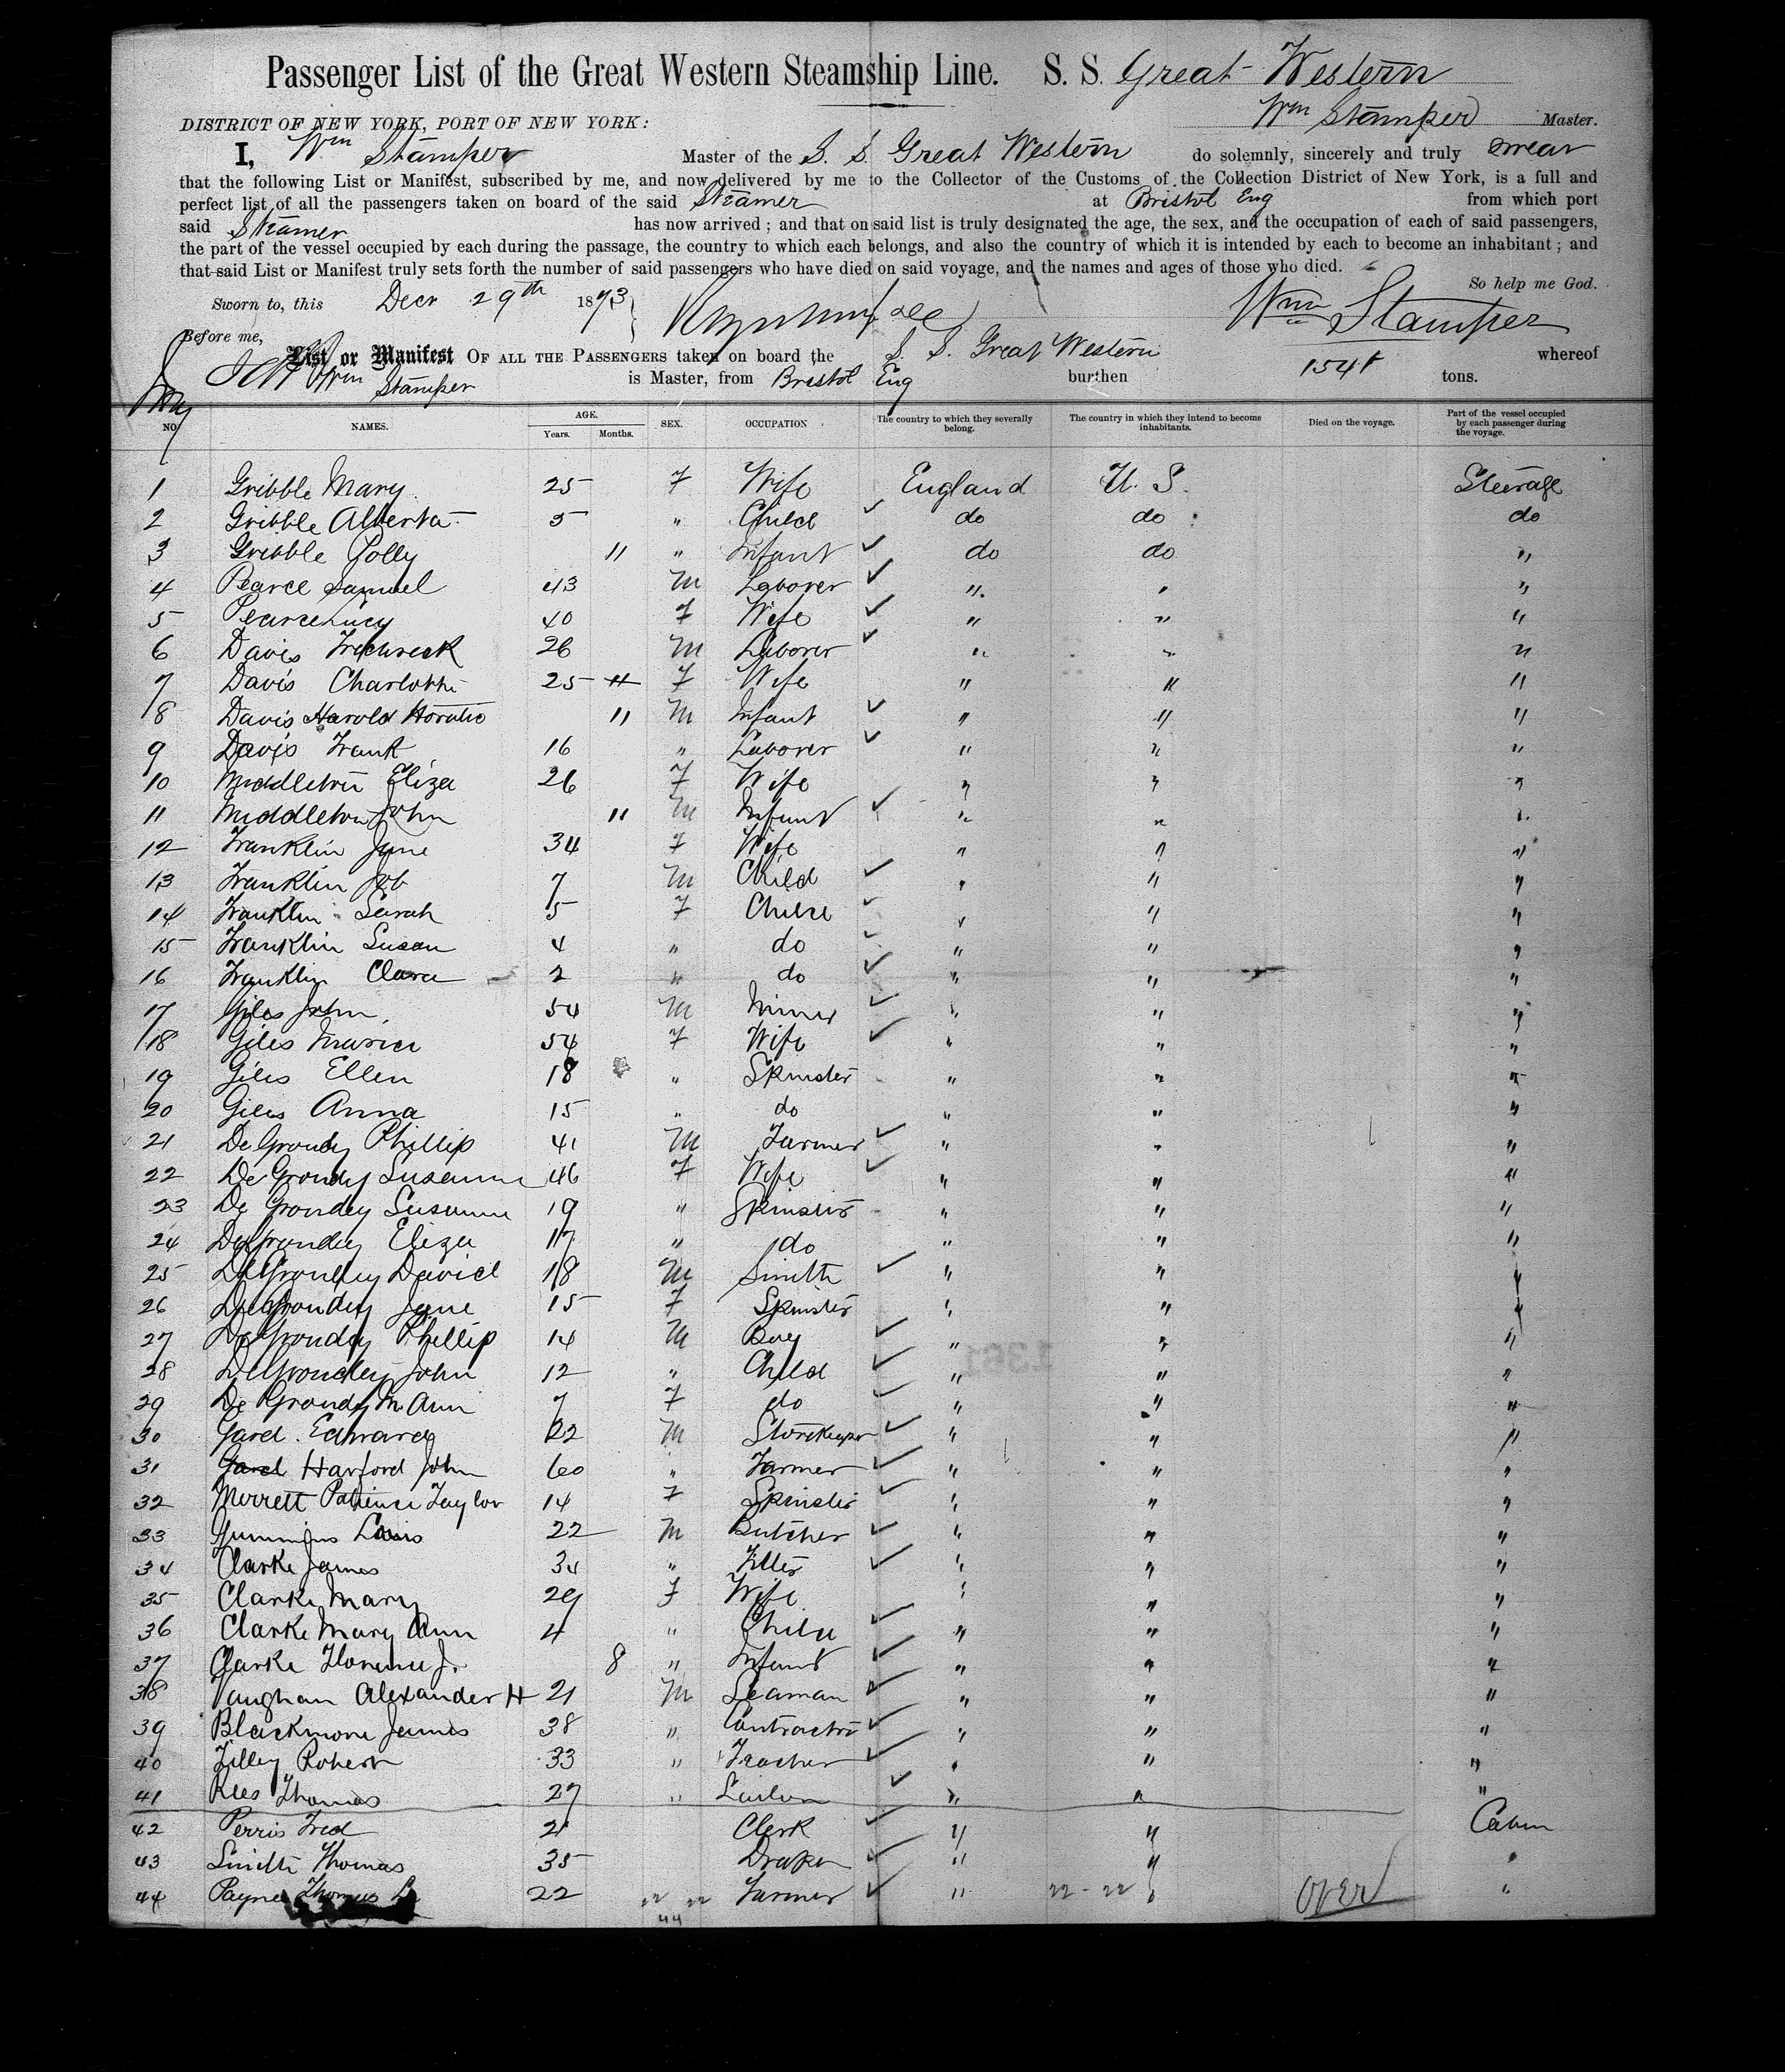 Passenger List of the Great Western Steamship Line. S. S. Great Western
Wm Stamper Master.
DISTRICT OF NEW YORK, PORT OF NEW YORK:
I, Wm Stamper Master of the S. S. Great Western do solemnly, sincerely and truly swear
that the following List or Manifest, subscribed by me, and now delivered by me to the Collector of the Customs of the Collection District of New York, is a full and
perfect list of all the passengers taken on board of the said Steamer at Bristol Eng from which port
said Steamer has now arrived; and that on said list is truly designated the age, the sex, and the occupation of each of said passengers,
the part of the vessel occupied by each during the passage, the country to which each belongs, and also the country of which it is intended by each to become an inhabitant; and
that said List or Manifest truly sets forth the number of said passengers who have died on said voyage, and the names and ages of those who died.
So help me God.
Sworn to, this Decr 29th 1873 Wm Stamper
Before me,
List or Manifest OF ALL THE PASSENGERS taken on board the S. S. Great Western whereof
Wm Stamper is Master, from Bristol Eng burthen 1541 tons.
NO. NAMES. AGE. Years. Months. SEX. OCCUPATION The country to which they severally belong. The country in which they intend to become inhabitants. Died on the voyage. Part of the vessel occupied by each passenger during the voyage.
1 Gribble Mary 25 F Wife England U. S. Steerage
2 Gribble Alberta 5 " Child do do do
3 Gribble Polly 11 " Infant do do "
4 Pearce Samuel 43 M Laborer " " "
5 Pearce Lucy 40 F Wife " " "
6 Davis Frederick 26 M Laborer " " "
7 Davis Charlotte 25 F Wife " " "
8 Davis Harold Horatio 11 M Infant " " "
9 Davis Frank 16 " Laborer " " "
10 Middleton Eliza 26 F Wife " " "
11 Middleton John 11 M Infant " " "
12 Franklin Jane 34 F Wife " " "
13 Franklin Job 7 M Child " " "
14 Franklin Sarah 5 F Child " " "
15 Franklin Susan 4 " do " " "
16 Franklin Clara 2 " do " " "
17 Giles John 54 M Miner " " "
18 Giles Maria 54 F Wife " " "
19 Giles Ellen 18 " Spinster " " "
20 Giles Anna 15 " do " " "
21 De Grondy Phillip 41 M Farmer " " "
22 De Grondy Susanna 46 F Wife " " "
23 De Grondey Susanna 19 " Spinster " " "
24 DeGrondey Eliza 17 " do " " "
25 DeGrondey David 18 M Smith " " "
26 DeGrondey Jane 15 F Spinster " " "
27 DeGrondey Phillip 14 M Boy " " "
28 DeGrondey John 12 " Child " " "
29 De Grondy M. Ann 7 F do " " "
30 Gard Edward 22 M Storekeeper " " "
31 Gard Harford John 60 " Farmer " " "
32 Merrett Patience Taylor 14 F Spinster " " "
33 Louis 22 M Butcher " " "
34 Clarke James 34 " Fitter " " "
35 Clarke Mary 29 F Wife " " "
36 Clarke Mary Ann 4 " Child " " "
37 Clarke Florence J. 8 " Infant " " "
38 Vaughan Alexander H 21 M Seaman " " "
39 Blackmore James 38 " Contractor " " "
40 Tilley Robert 33 " Teacher " " "
41 Rees Thomas 27 " " " "
42 Perris Fred 21 Clerk " " Cabin
43 Smith Thomas 35 Draper " " "
44 Payne Thomas 22 22 22 Farmer " 22 - 22 " OVER "
44